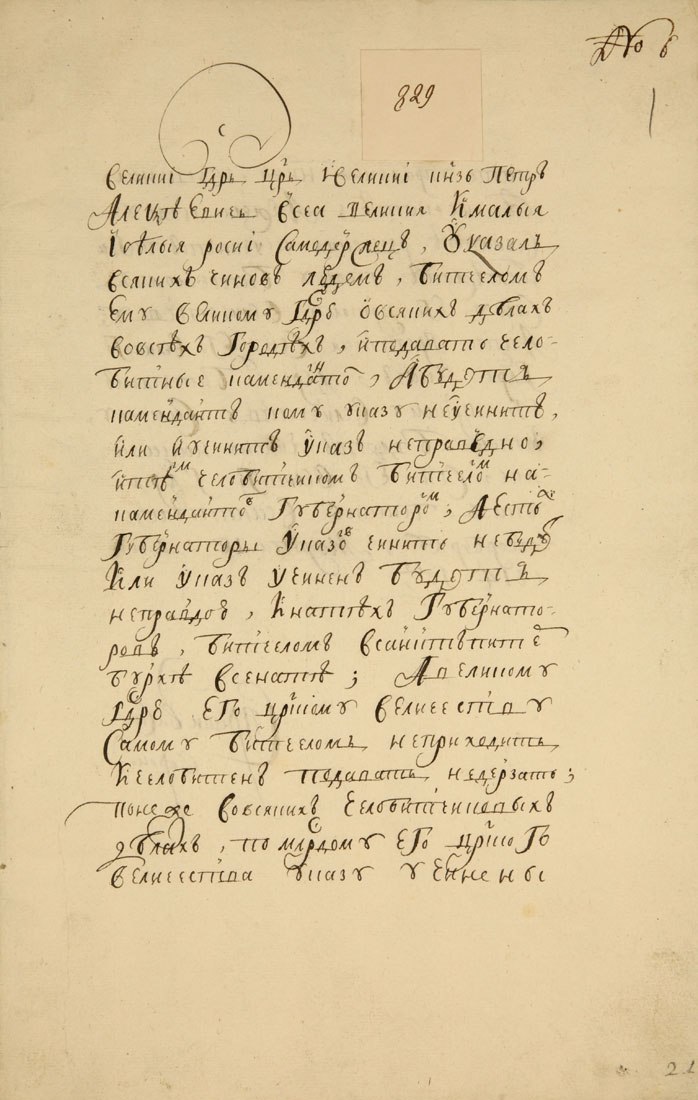 № 6
1
829
Великиі Гдрь Црь ивеликиі кнзь Петръ
Алеѯѣевичь Всеа Великия Ималыя
Ібѣлыя росиі Самодержецъ, Указалъ
всякихъ чиновъ людемъ, битчеломъ
Ему великому Гдрю овсякихъ дѣлахъ
вовсѣхъ Городѣхъ, иподавать чело-
битные камендантомъ, Абудетъ
камендантъ кому указу неучинитъ,
Или иучинитъ указъ неправедно,
итѣм челобитчикомъ битчелом на-
камендантов Губернатором, Аесть
Губернаторы Указов чинить небудут
Или указъ учиненъ будетъ
неправдою, Инатѣхъ Губернато-
ровъ, битчеломъ всанктъпитер
бурхѣ всенатѣ; Авеликому
Гдрю Его црскому величеству
Самому битчеломъ неприходить
Ичелобитенъ подавать недерзать;
понеже вовсякихъ челобитчиковыхъ
дѣлахъ, помлрдому Его црского
величества указу учинены
21